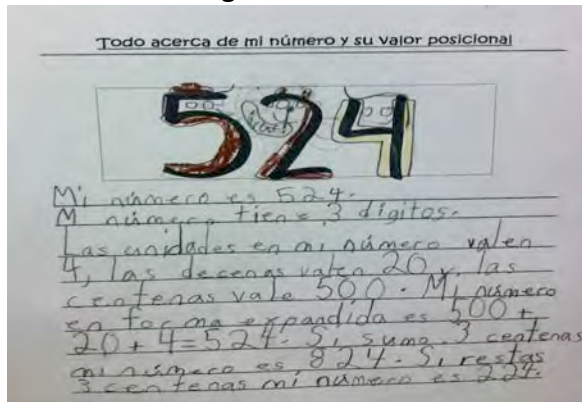 Todo acerca de mi número y su valor posicional
524
Mi número es 524.
M número tiene 3 dígitos.
Las unidades en mi número valen
4, las decenas valen 20 y las
centenas vale 500. Mi número
en forma expandida es 500 +
20 + 4 = 524. Si suma 3 centenas
mi número es 824. Si restas
3 centenas mi número es 224.